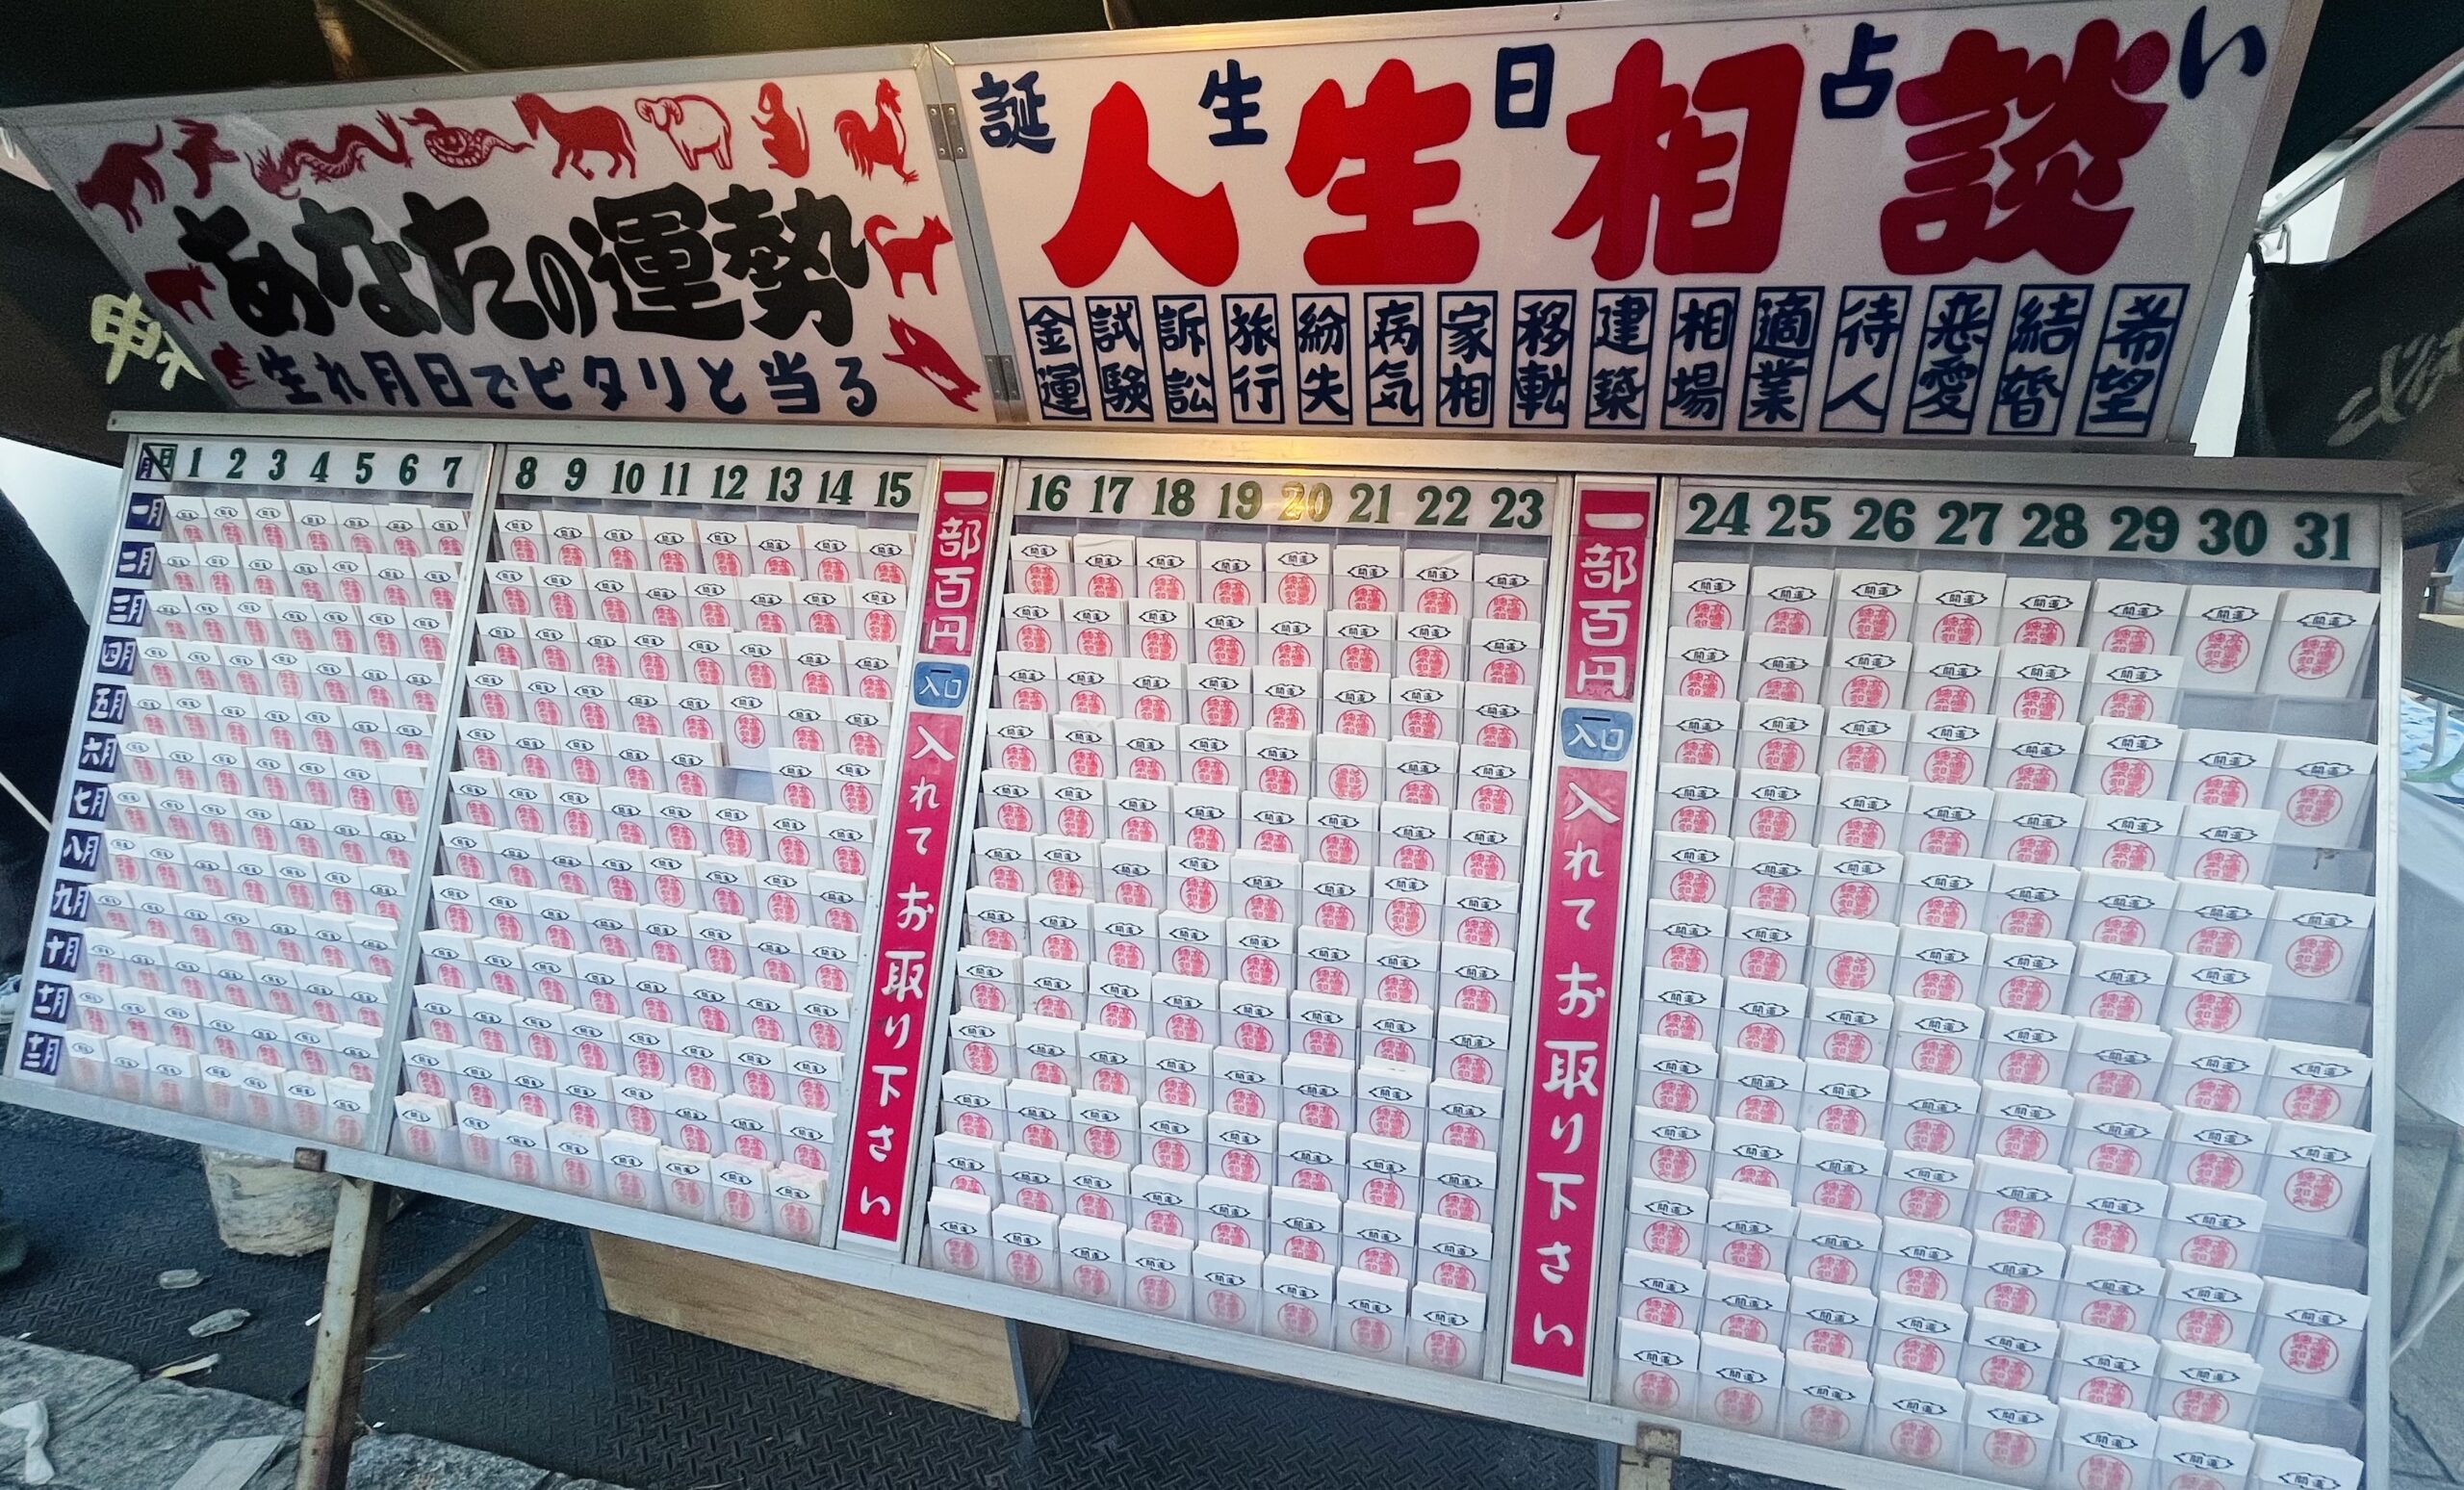 あなたの運勢
生れ月日でピタリと当る
誕生日占い
人生相談
金運 試験 訴訟 旅行 紛失 病気 家相 移転 建築 相場 適業 待人 恋愛 結婚 希望
月 日 1 2 3 4 5 6 7 8 9 10 11 12 13 14 15 16 17 18 19 20 21 22 23 24 25 26 27 28 29 30 31
一月
二月
三月
四月
五月
六月
七月
八月
九月
十月
十一月
十二月
一部百円
入口
入れてお取り下さい
一部百円
入口
入れてお取り下さい
開運